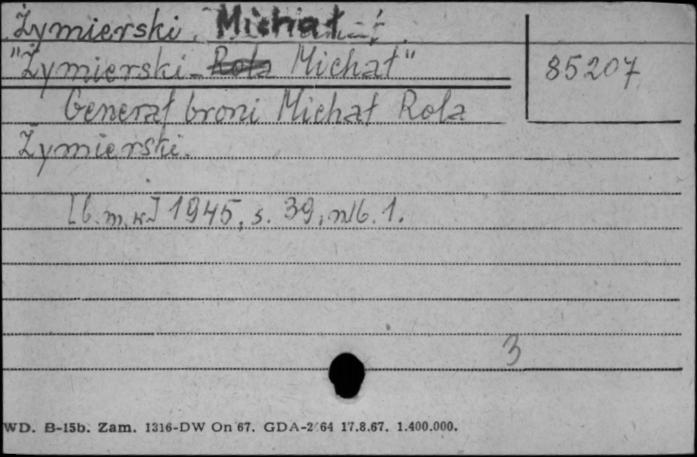 Żymierski Michał
"Żymierski-Rola Michał"
85207
Generał broni Michał Rola
Żymierski.
[b.m.w.] 1945, s. 39, nlb. 1.
3
WD. B-15b. Zam. 1316-DW On 67. GDA-2/64 17.8.67. 1.400.000.